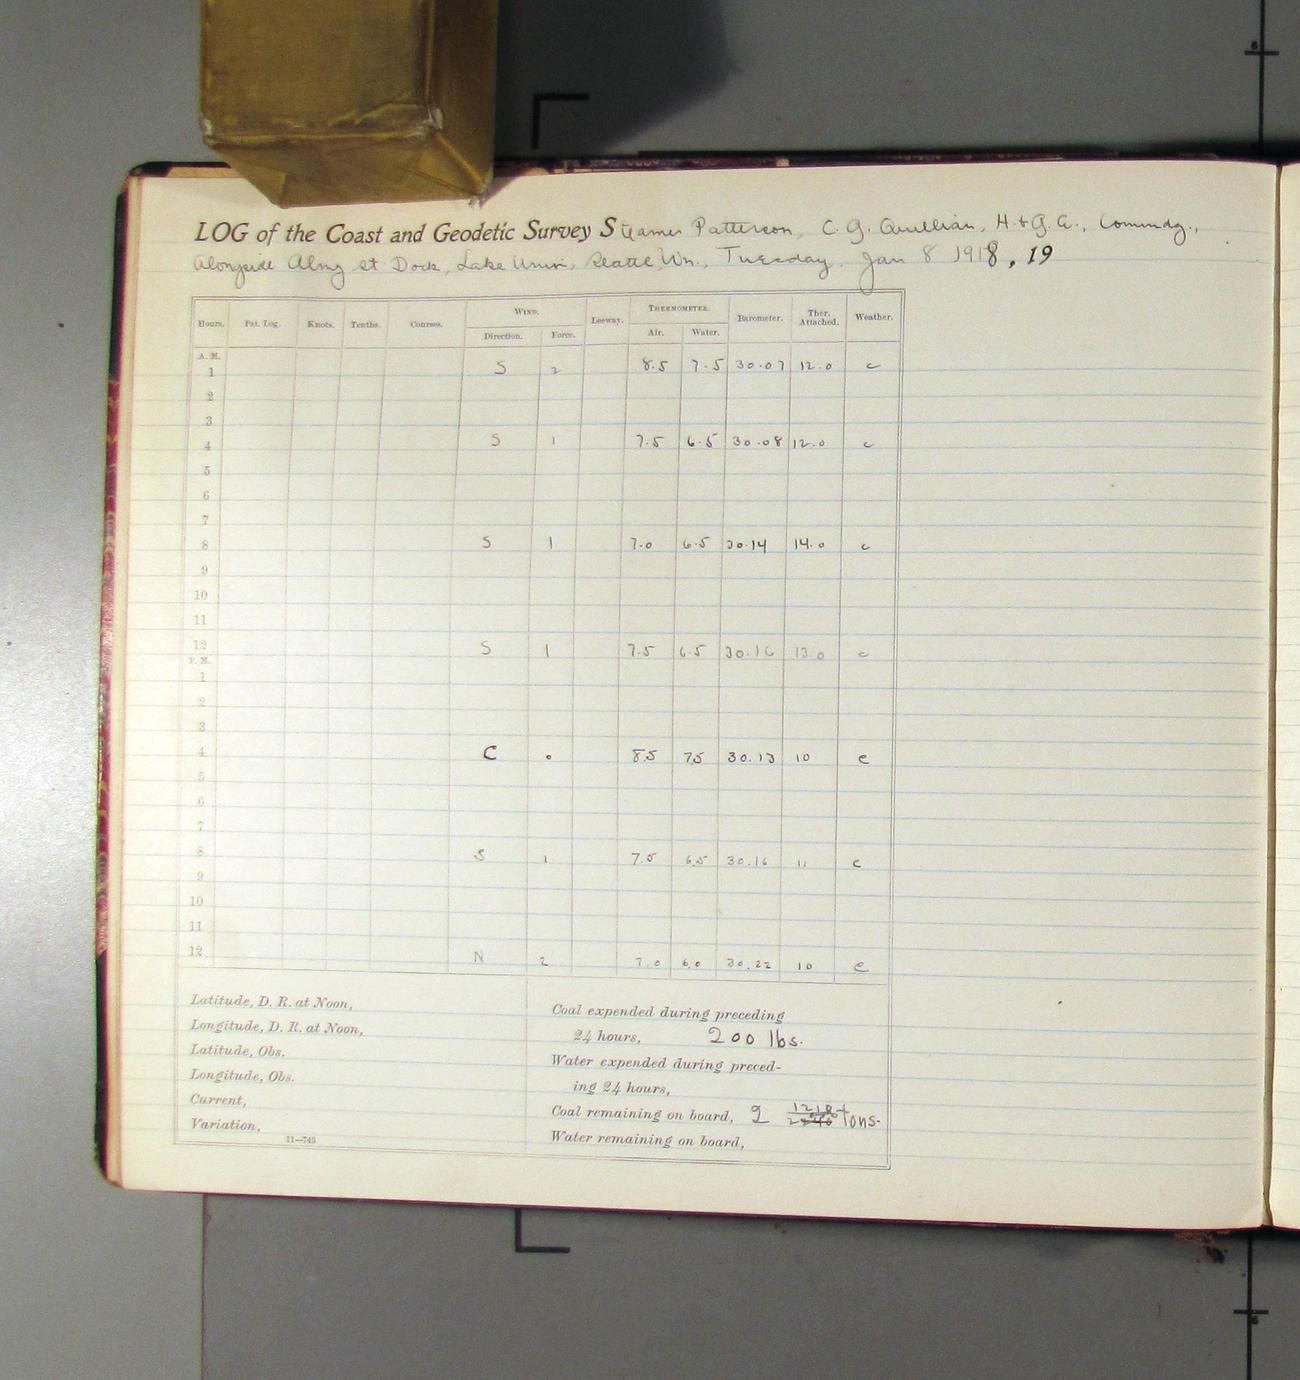 LOG of the Coast and Geodetic Survey Steamer Patterson, C. G. Quillian, H. & G. E., Commdg.,
Alongside Almy st. Dock, Lake Union, Seattle, Wn., Tuesday, Jan 8 1918, 19
Hours. Pat. Log. Knots. Tenths. Courses. WIND. Leeway. THERMOMETER. Barometer. Ther. Attached. Weather.
Direction. Force. Air. Water.
A. M.
1 S 2 8.5 7.5 30.07 12.0 c
2
3
4 S 1 7.5 6.5 30.08 12.0 c
5
6
7
8 S 1 7.0 6.5 30.14 14.0 c
9
10
11
12 S 1 7.5 6.5 30.16 13.0 c
P. M.
1
2
3
4 C 0 8.5 7.5 30.13 10 c
5
6
7
8 S 1 7.5 6.5 30.16 11 c
9
10
11
12 N 2 7.0 6.0 30.22 10 c
Latitude, D. R. at Noon,
Longitude, D. R. at Noon,
Latitude, Obs.
Longitude, Obs.
Current,
Variation,
11—743
Coal expended during preceding
24 hours, 200 lbs.
Water expended during preced-
ing 24 hours,
Coal remaining on board, 2 tons.
Water remaining on board,